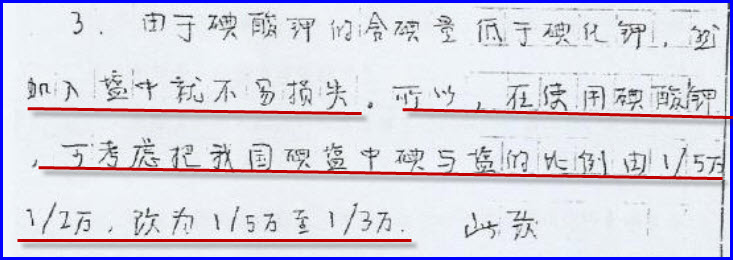 3. 由于碘酸钾的含碘量低于碘化钾,
加入盐中就不易损失。所以,在使用碘酸钾
,可考虑把我国碘盐中碘与盐的比例由1/5万
1/2万,改为1/5万至1/3万. 此致